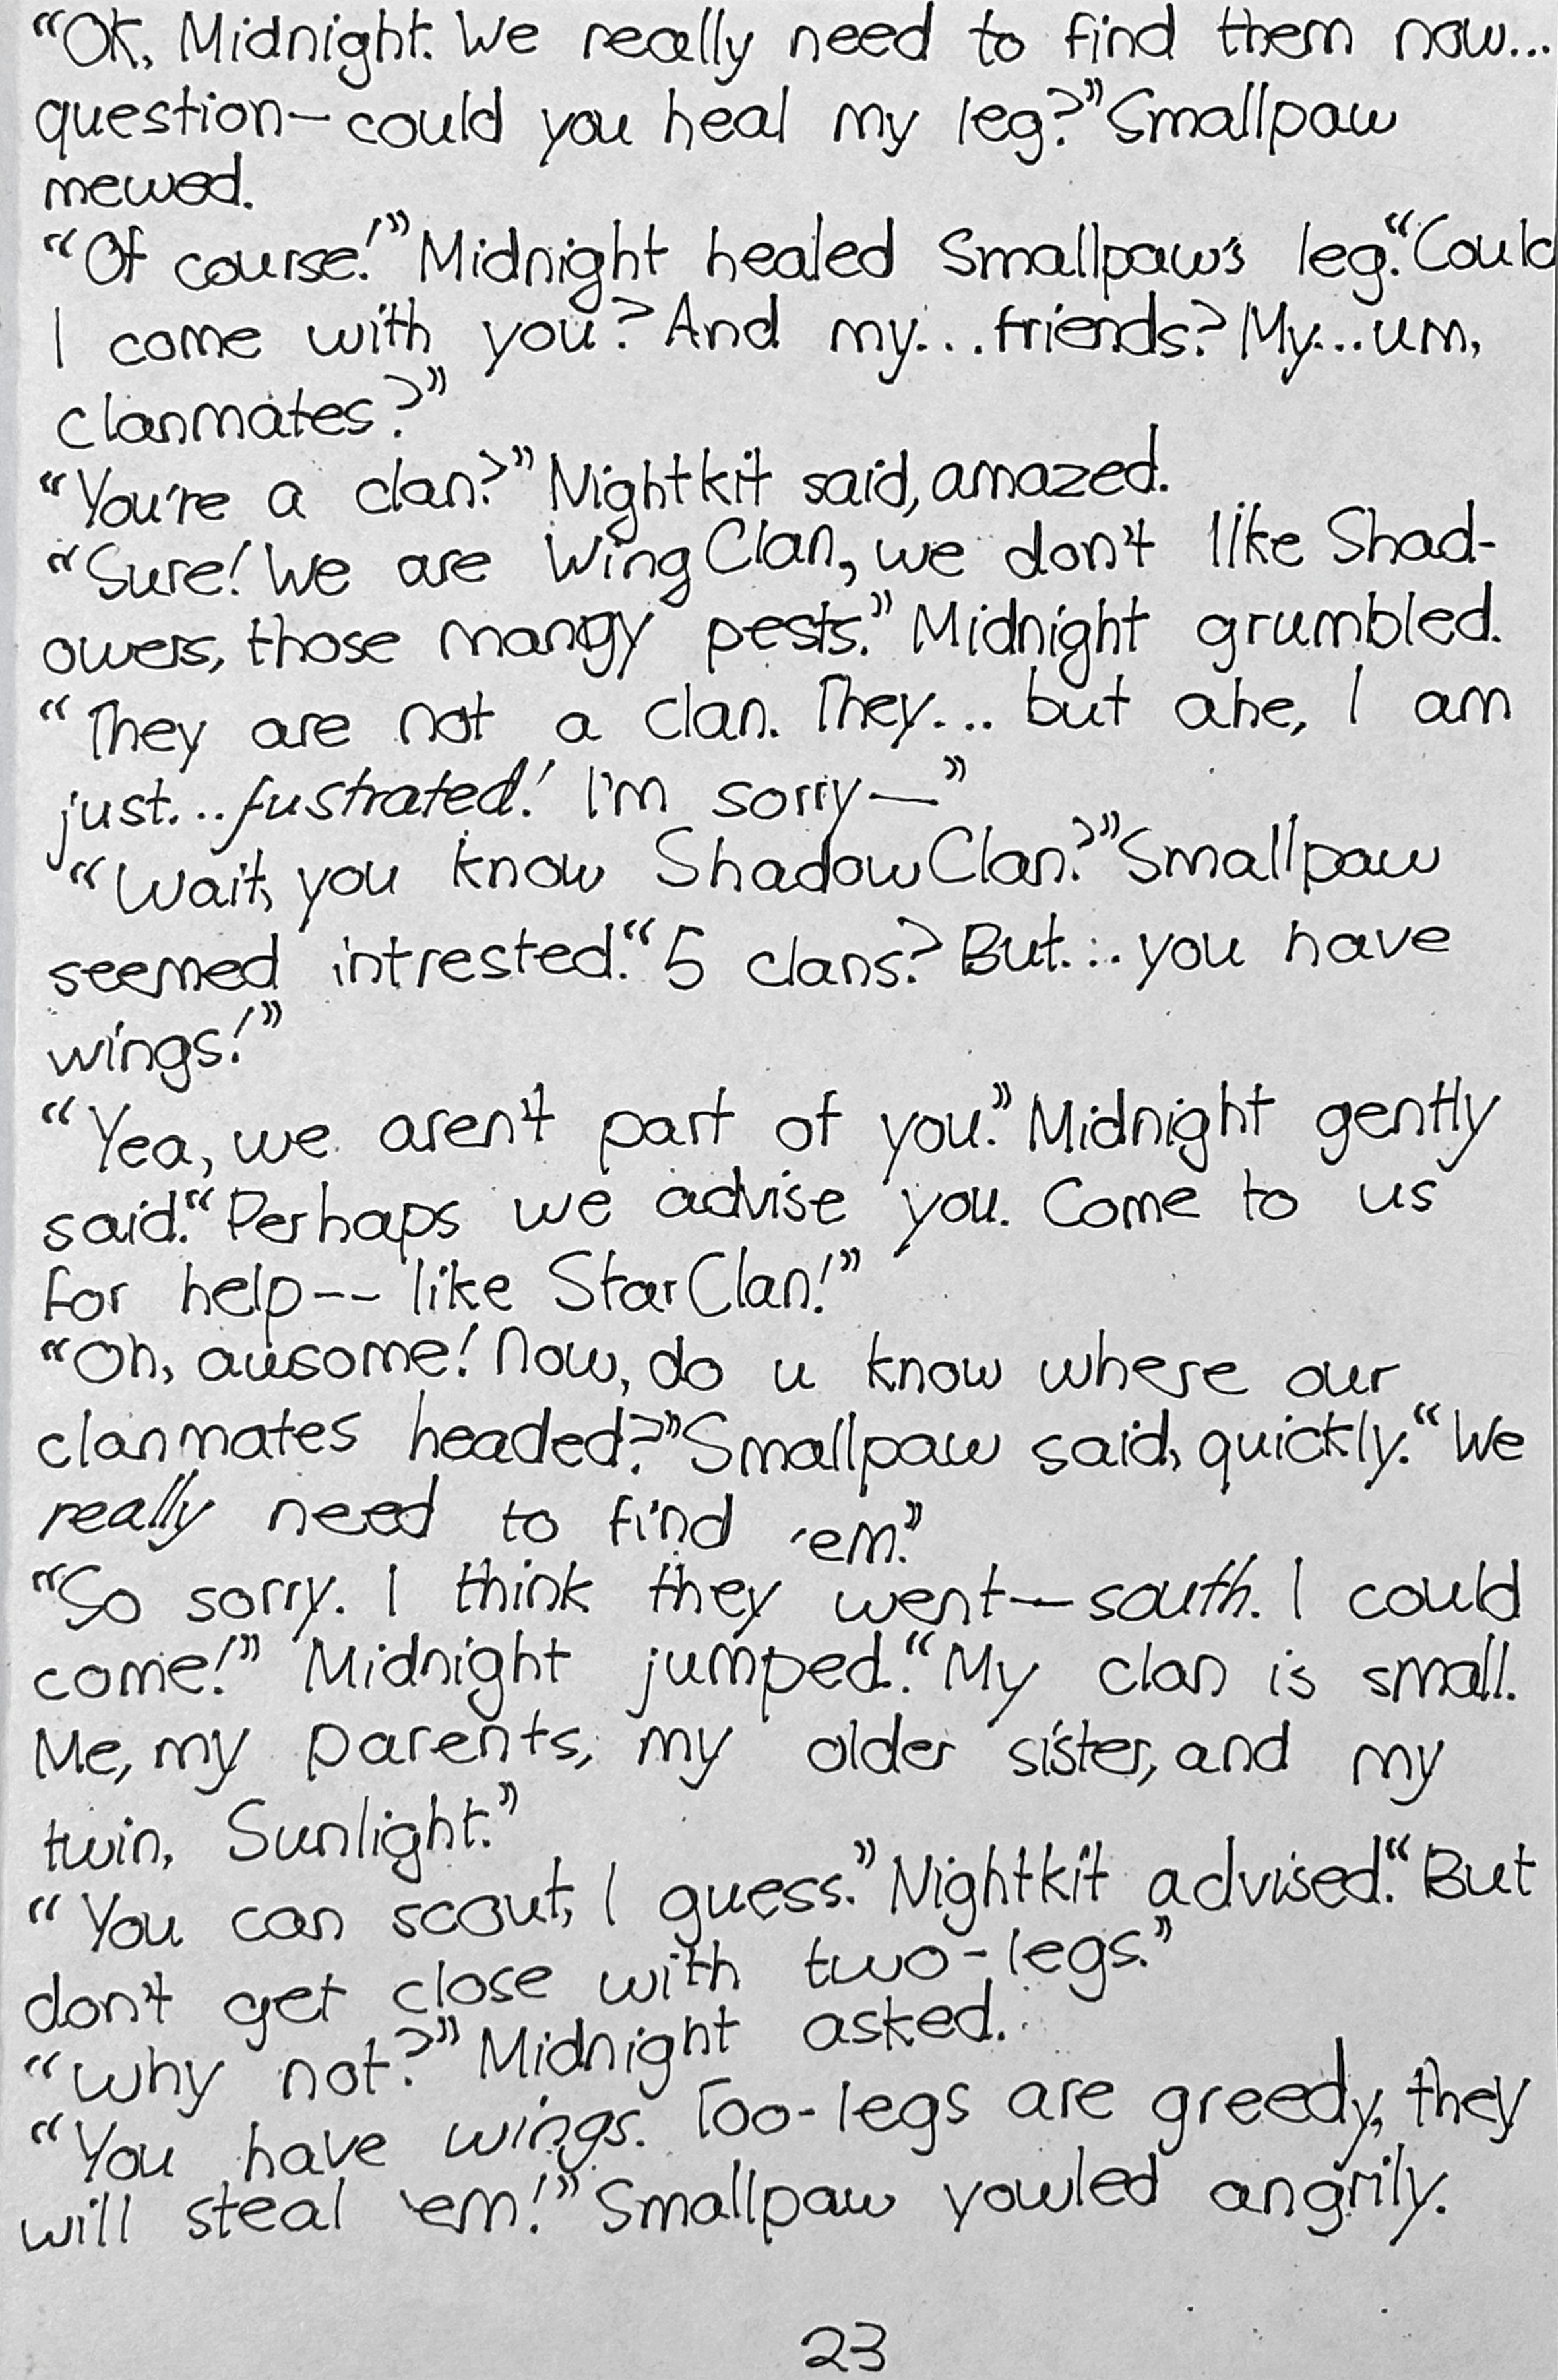 “OK, Midnight. We really need to find them now...
question—could you heal my leg?” Smallpaw
mewed.
“Of course!” Midnight healed Smallpaw's leg. “Could
I come with you? And my...friends? My...um,
clanmates?”
“You're a clan?” Nightkit said, amazed.
“Sure! We are WingClan, we don't like Shad-
owers, those mangy pests.” Midnight grumbled.
“They are not a clan. They... but ahe, I am
just...fustrated! I'm sorry—”
“Wait, you know ShadowClan?” Smallpaw
seemed intrested. “5 clans? But... you have
wings!”
“Yea, we aren't part of you.” Midnight gently
said. “Perhaps we advise you. Come to us
for help-- like StarClan!”
“Oh, awsome! Now, do u know where our
clanmates headed?” Smallpaw said, quickly. “We
really need to find 'em.”
“So sorry. I think they went—south. I could
come!” Midnight jumped. “My clan is small.
Me, my parents, my older sister, and my
twin, Sunlight.”
“You can scout, I guess.” Nightkit advised. “But
don't get close with two-legs.”
“Why not?” Midnight asked.
“You have wings. Too-legs are greedy, they
will steal 'em!” Smallpaw yowled angrily.
23